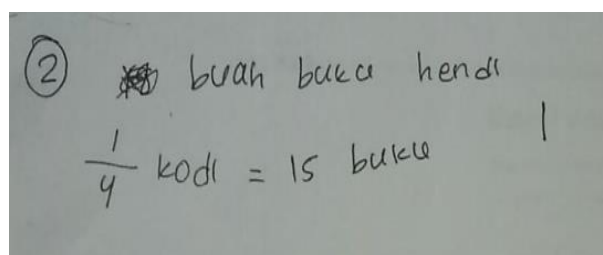 ② buah buku hendi
1/4 kodi = 15 buku